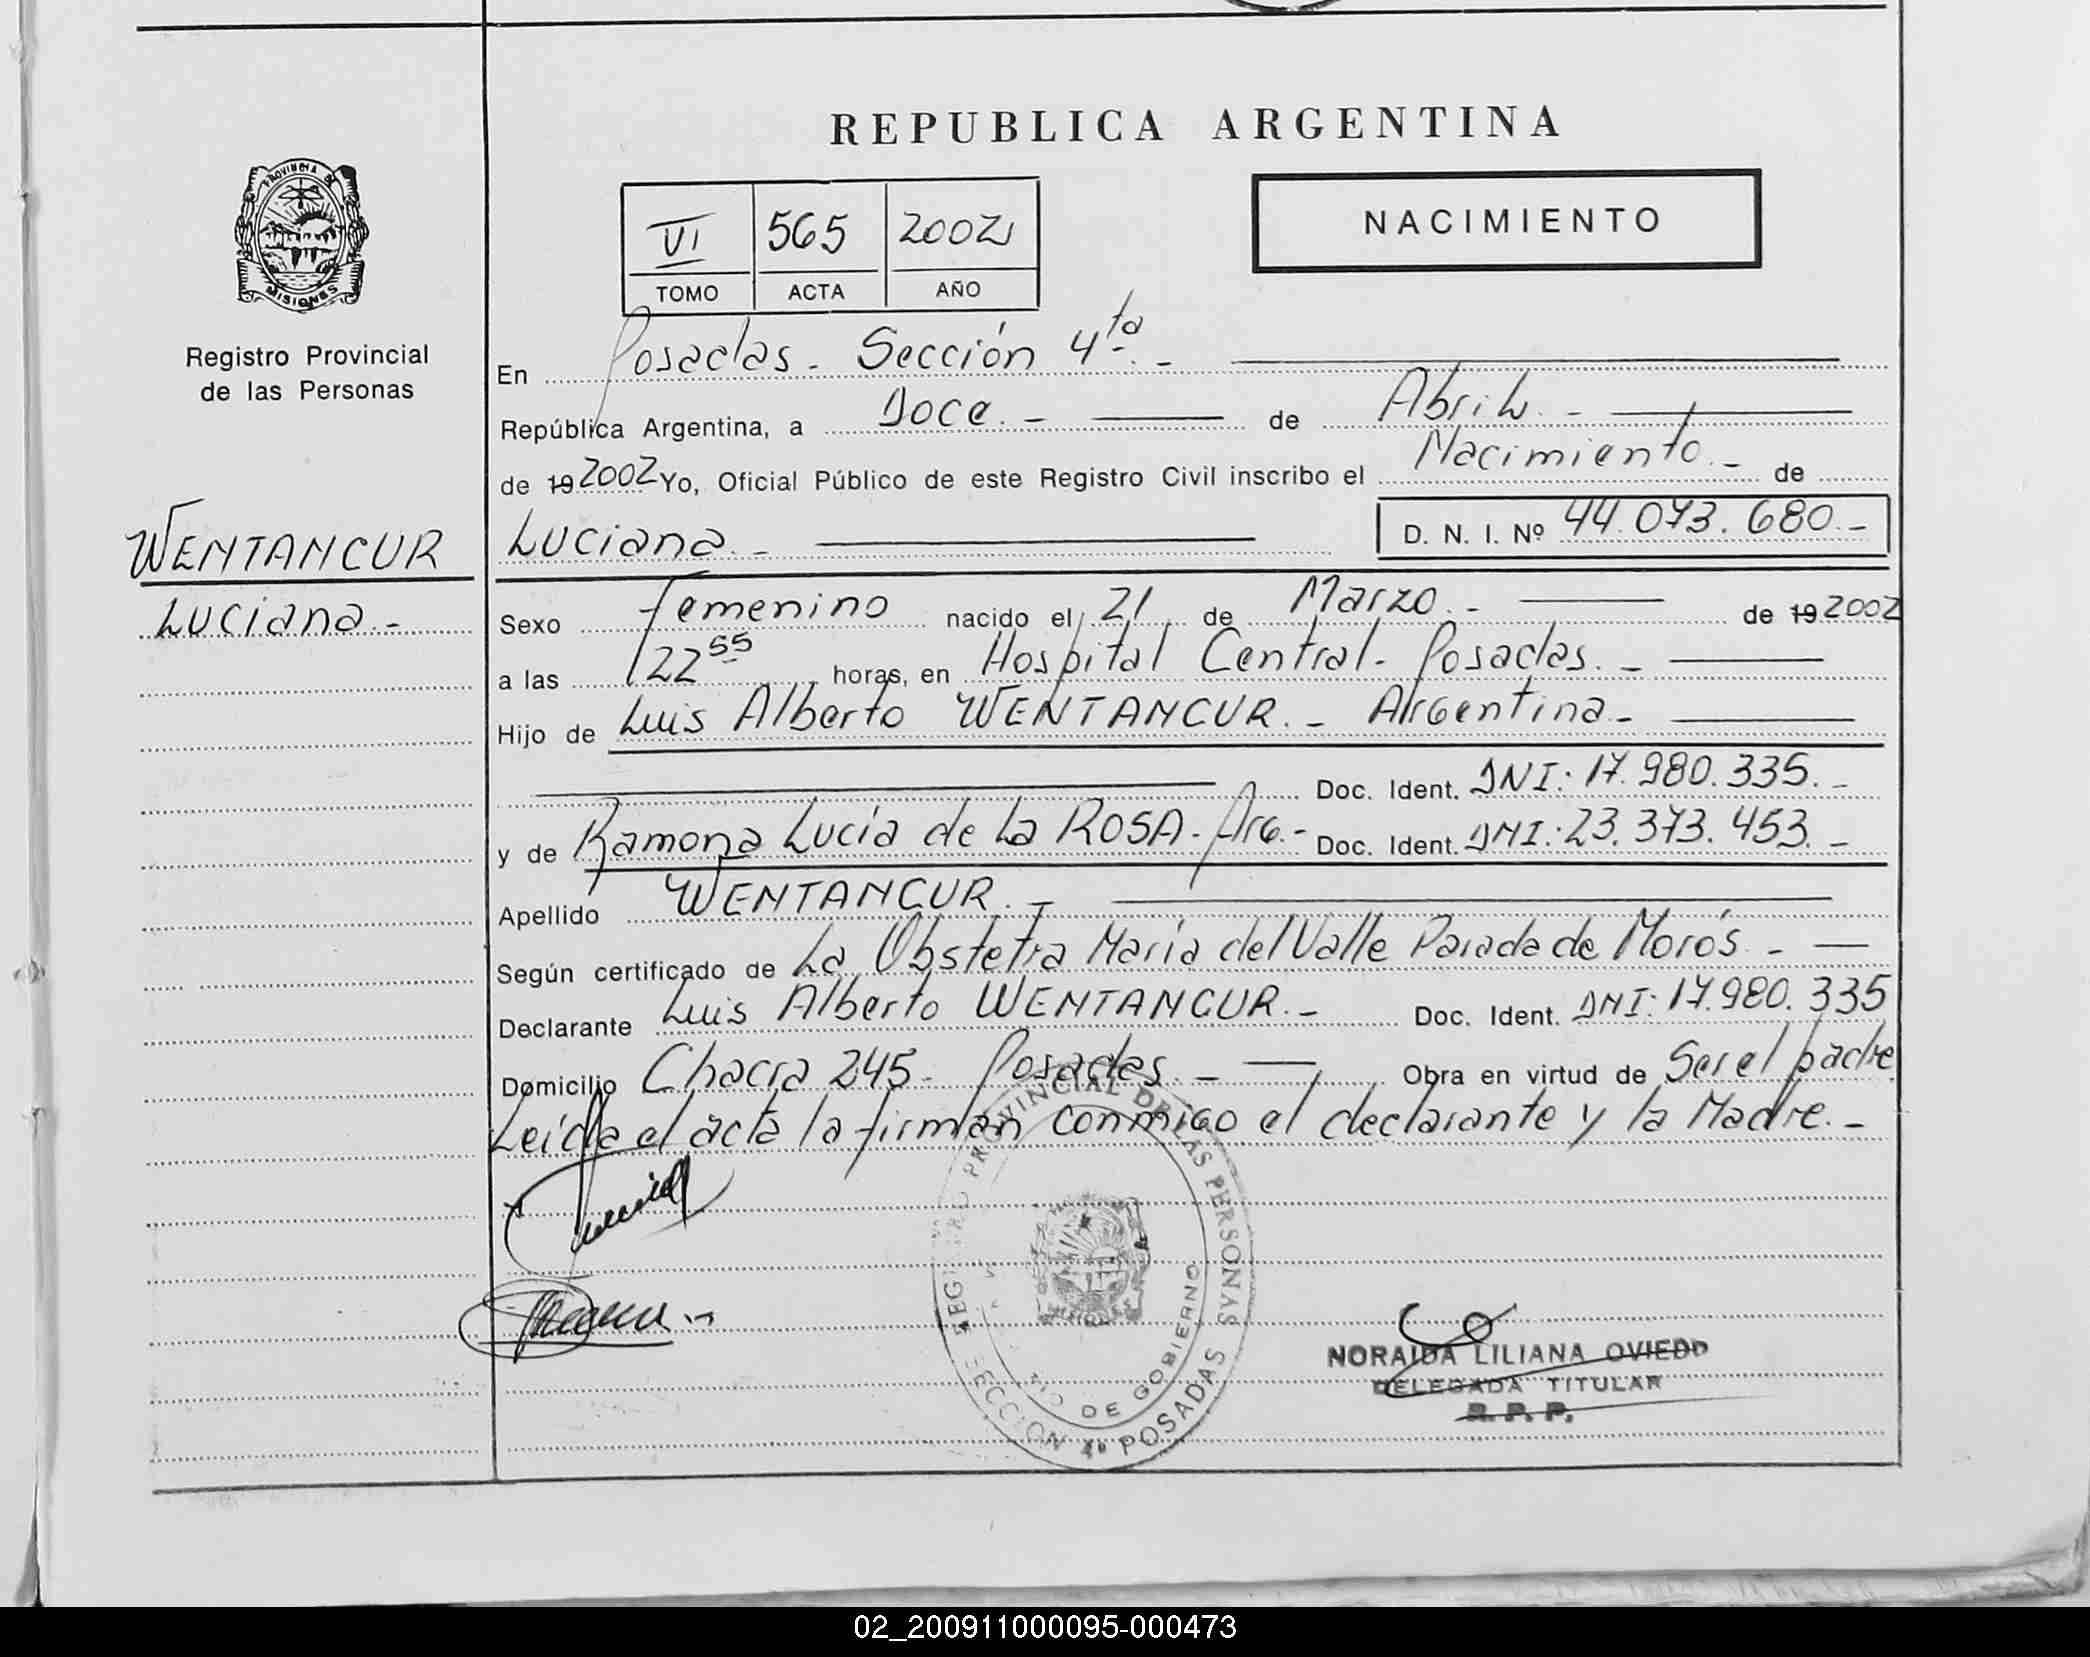 REPUBLICA ARGENTINA
PROVINCIA DE
MISIONES
Registro Provincial
de las Personas
VI 565 2002
TOMO ACTA AÑO
NACIMIENTO
En Posadas - Sección 4ta. -
República Argentina, a Doce. - de Abril. -
de 19 2002 Yo, Oficial Público de este Registro Civil inscribo el Nacimiento. - de
WENTANCUR
Luciana. -
Luciana. - D. N. I. Nº 44.073.680. -
Sexo Femenino nacido el 21 de Marzo. - de 19 2002
a las 22 55 horas, en Hospital Central - Posadas. -
Hijo de Luis Alberto WENTANCUR. - Argentina. -
Doc. Ident. DNI: 17.980.335. -
y de Ramona Lucía de la ROSA - Arg. - Doc. Ident. DNI: 23.373.453. -
Apellido WENTANCUR. -
Según certificado de La Obstetra María del Valle Parada de Morós. -
Declarante Luis Alberto WENTANCUR. - Doc. Ident. DNI: 17.980.335
Domicilio Chacra 245 - Posadas. - Obra en virtud de Ser el padre
Leída el acta la firman conmigo el declarante y la Madre. -
REGISTRO PROVINCIAL DE LAS PERSONAS
DE GOBIERNO
SECCION 4ª POSADAS
NORAIDA LILIANA OVIEDO
DELEGADA TITULAR
R. P. P.
02_200911000095-000473